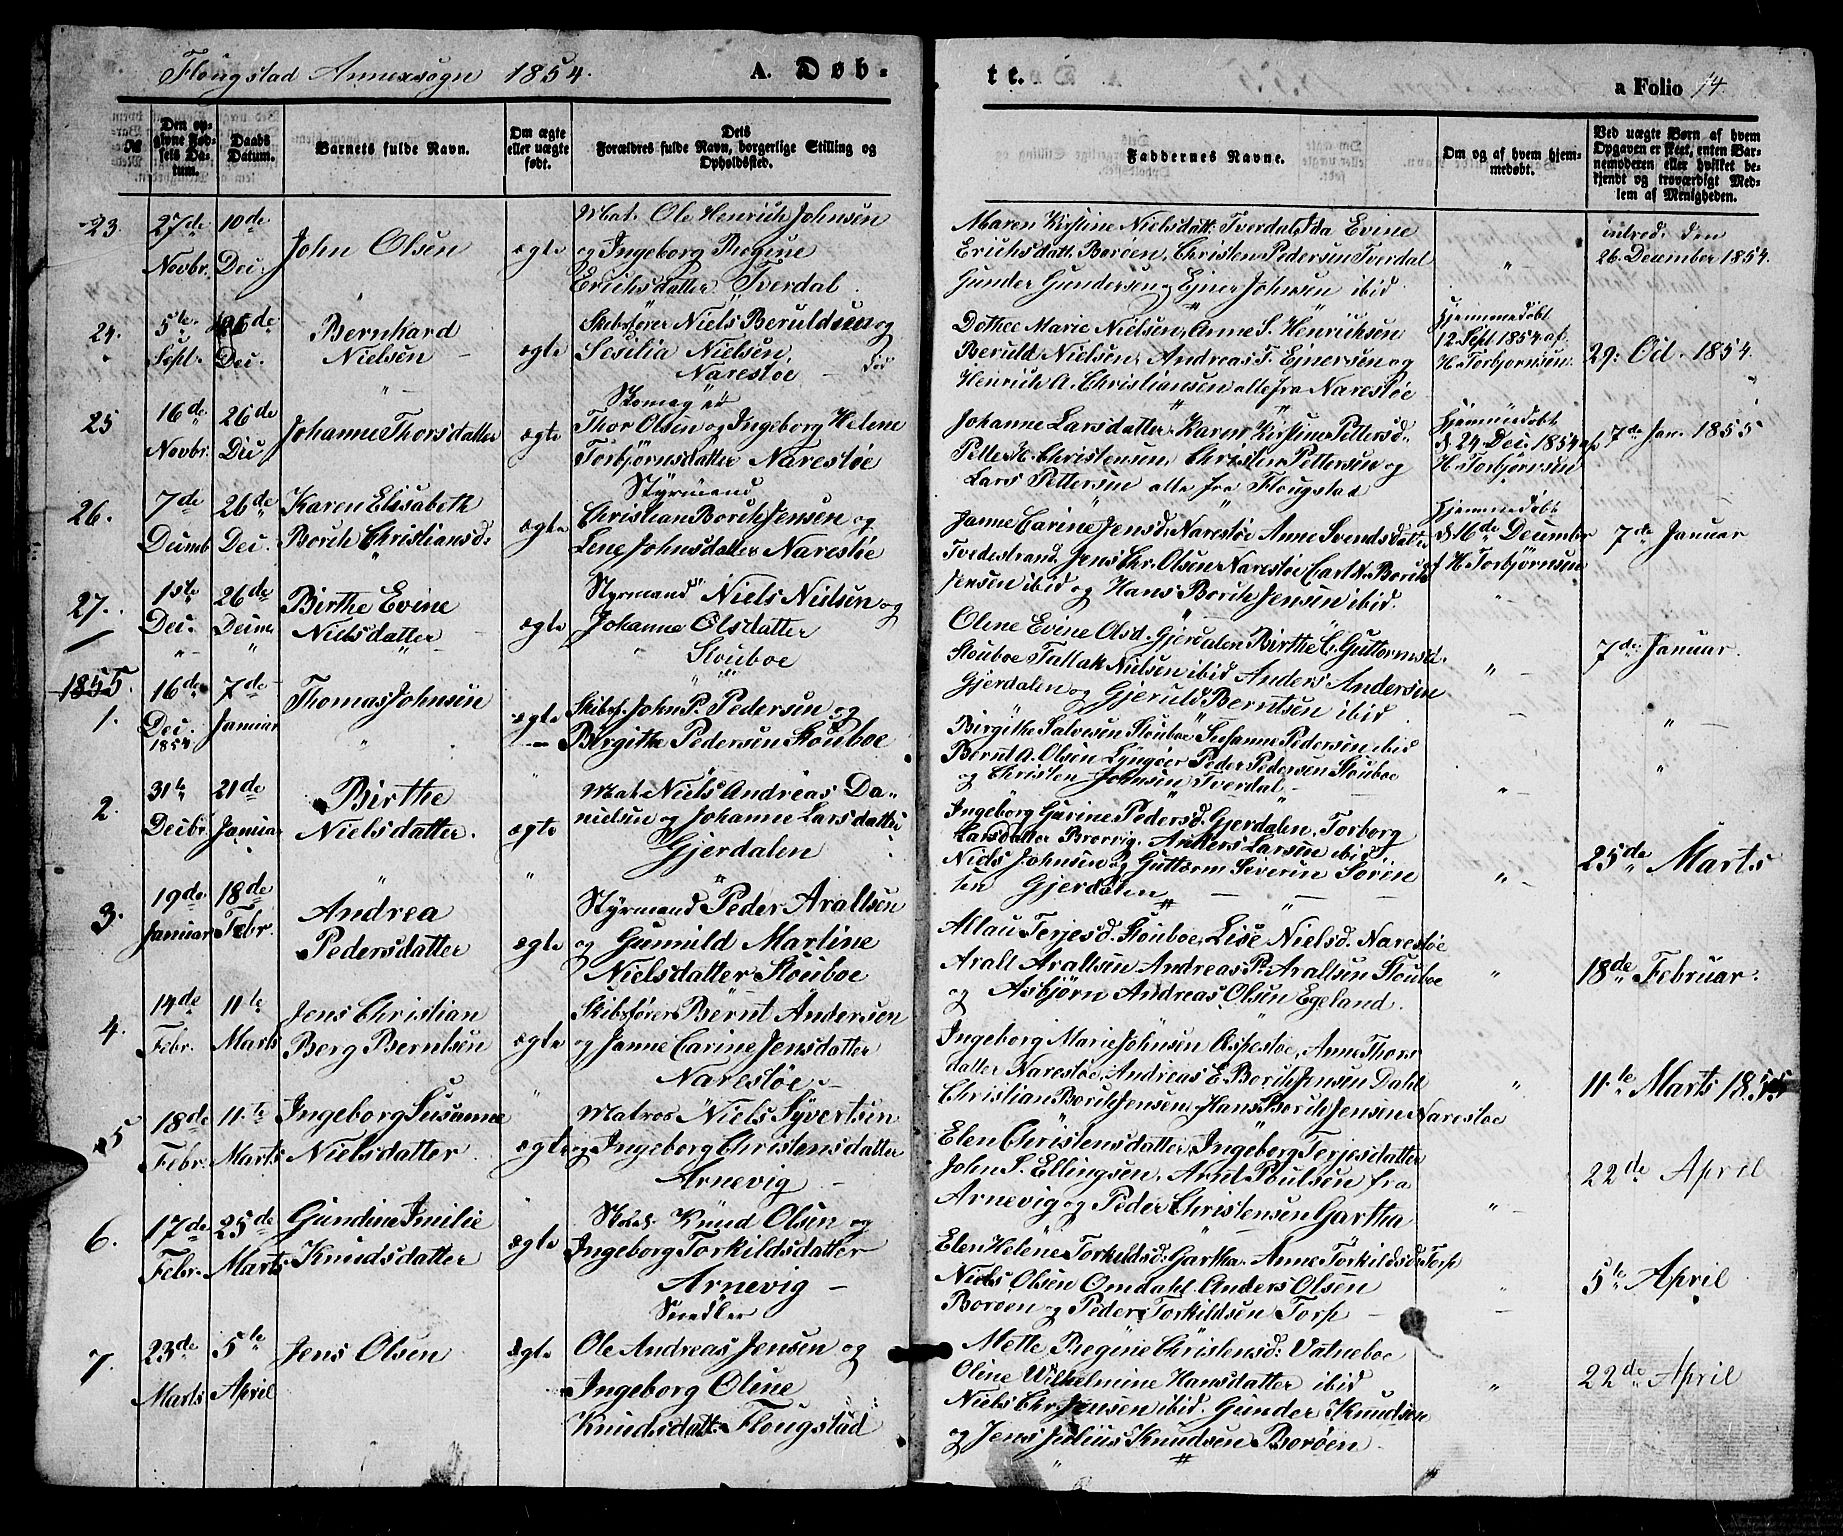 Flougstad Annexsogn 1854.
A. Døb-
te.
a Folio 14
№
Den op-
givne Fød-
sels Da-
tum.
Daabs
Datum.
Barnets fulde Navn.
Om ægte
eller uægte
født.
Dets
Forældres fulde Navn, borgerlige Stilling og
Opholdssted.
Faddernes Navne.
Om og af hvem hjem-
medøbt.
Ved uægte Børn af hvem
Opgaven er skeet, enten Bar-
nemoderen eller hvilket be-
kjendt og troværdigt Med-
lem af Menigheden.
23.
27de
Novbr.
10de
Dec.
John Olsen
ægte
Mat. Ole Henrich Johnsen
og Ingeborg Regine
Erichsdatter Tverdal.
Maren Kirstine Nielsdatt. Tverdal, Ida Evine
Erichsdatt. Borøen, Christen Pedersen Tverdal
Gunder Gundersen og Ejner Johnsen ibid
introd. den
26. December 1854.
24.
5te
Sept.
26de
Dec.
Bernhard
Nielsen
ægte
Skibsfører Niels Beruldsen og
Sesilia Nielsen,
Narestøe
Dothee Marie Nielsen, Anne S. Henrichsen
Beruld Nielsen, Andreas T. Ejnersen og
Henrich A. Christiansen alle fra Narestøe
Hjemmedøbt
12 Sept 1854 af
H. Torbjørnsen.
29. Oct. 1854.
25
16de
Novbr.
26de
Dec
Johanne Thorsdatter
ægte
Skomager
Thor Olsen og Ingeborg Helene
Torbjørnsdatter Narestøe
Johanne Larsdatter, Karen Kirstine Pettersd.
Petter H. Christensen, Christen Pettersen og
Lars Pettersen alle fra Flougstad
Hjemmedøbt
d. 24 Dec. 1854 af
H. Torbjørnsen
7de Jan. 1855
26.
7de
Decemb
26de
Dec.
Karen Elisabeth
Borch Christiansd.
ægte
Styrmand
Christian Borch Jensen og
Lene Johnsdatter Narestøe
Janne Carine Jensd. Narestøe Anne Svendsdatter
Tvedestrand, Jens Chr. Olsen Narestøe Carl N. Borch
Jensen ibid og Hans Borch Jensen ibid.
Hjemmedøbt
d. 16de December
af H. Torbjørnsen
7de Januar
27.
1ste
Dec.
26de
Decem.
Birthe Evine
Nielsdatter
ægte
Styrmand Niels Nielsen og
Johanne Olsdatter
Stouboe
Olene Evine Olsd. Gjerdalen Birthe C. Guttormsd.
Stouboe Tallak Nielsen ibid Anders Andersen
Gjerdalen og Gjeruld Berntsen ibid
7de Januar.
1855.
1.
16de
Dec.
1854
7de
Januar
Thomas Johnsen
ægte
Skibsf. John P. Pedersen og
Birgithe Pedersen Stouboe
Birgithe Salvesen Stouboe Susanne Pedersen ibid
Bernt A. Olsen Lyngøer Peder Pedersen Stouboe
og Christen Johnsen Tverdal
2.
31te
Decbr.
21de
Januar
Birthe
Nielsdatter.
ægte
Mat. Niels Andreas Da-
nielsen og Johanne Larsdatter
Gjerdalen
Ingeborg Gurine Pedersd. Gjerdalen, Torborg
Larsdatter Brerrig, Anders Larsen ibid,
Niels Johnsen og Guttorm Siverin Søren
sen Gjerdalen
25de Marts
3.
19de
Januar
18de
Febr.
Andrea
Pedersdatter
ægte
Styrmand Peder Araltsen
og Gunnild Martine
Nielsdatter Stouboe
Allau Terjesd. Stouboe, Lise Nielsd. Narestøe
Aralt Araltsen Andreas P. Araltsen Stouboe
og Asbjørn Andreas Olsen Egeland.
18de Februar.
4.
14de
Febr.
11te
Marts
Jens Christian
Berg Berntsen
ægte
Skibsfører Bernt Andersen
og Janne Carine Jensdatter
Narestøe
Ingeborg Marie Johnsen Aspestøe, Anne Thors
datter Narestøe, Andreas E. Borch Jensen Dahl
Christian Borch Jensen, Hans Borch Jensen Narestøe
11te Marts 1855
5
18de
Febr.
11te
Marts
Ingeborg Susanne
Nielsdatter
ægte
Matros Niels Syvertsen
og Ingeborg Christensdatter
Arnevig
Elen Christensdatter, Ingeborg Terjesdatter
John S. Ellingsen, Arnt Poulsen fra
Arnevig og Peder Christensen Gartha
22de April
6.
17de
Febr.
25de
Marts
Gundine Imilie
Knudsdatter
ægte
Knud Olsen og
Ingeborg Torkildsdatter
Arnevig
Elen Helene Torkildsd. Gartha, Anne Torkildsd. Torp
Niels Olsen Omdahl, Anders Olsen
Borøen og Peder Torkildsen Torp
5te April
7.
23de
Marts
5te
April
Jens Olsen
ægte
Snedker
Ole Andreas Jensen og
Ingeborg Oline
Knudsdatt. Flougstad
Mette Regine Christensd. Vatneboe
Oline Wilhelmine Hansdatter ibid
Niels Chr Jensen ibid. Gunder Knudsen
og Jens Julius Knudsen Borøen
22de April